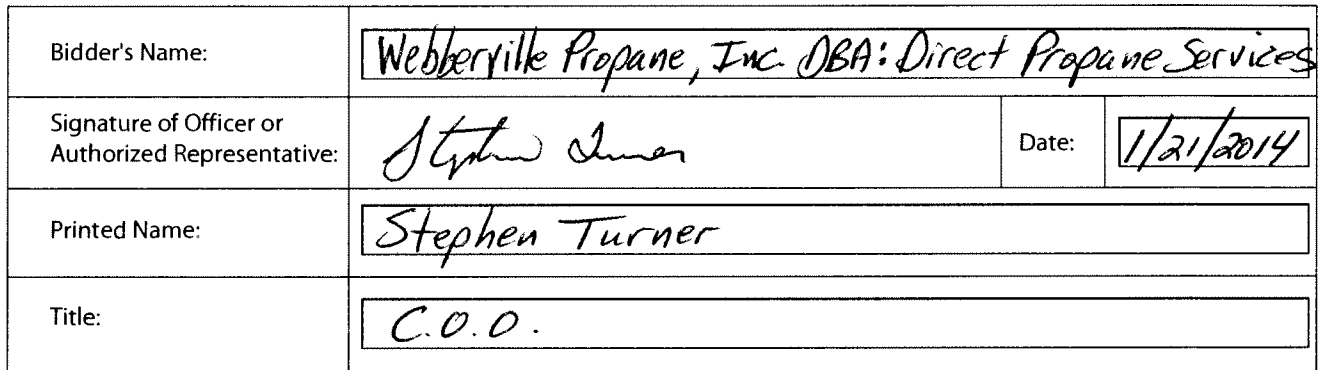 Bidder's Name: Webberville Propane, Inc. DBA: Direct Propane Services
Signature of Officer or
Authorized Representative: Stephen Turner Date: 1/21/2014
Printed Name: Stephen Turner
Title: C.O.O.